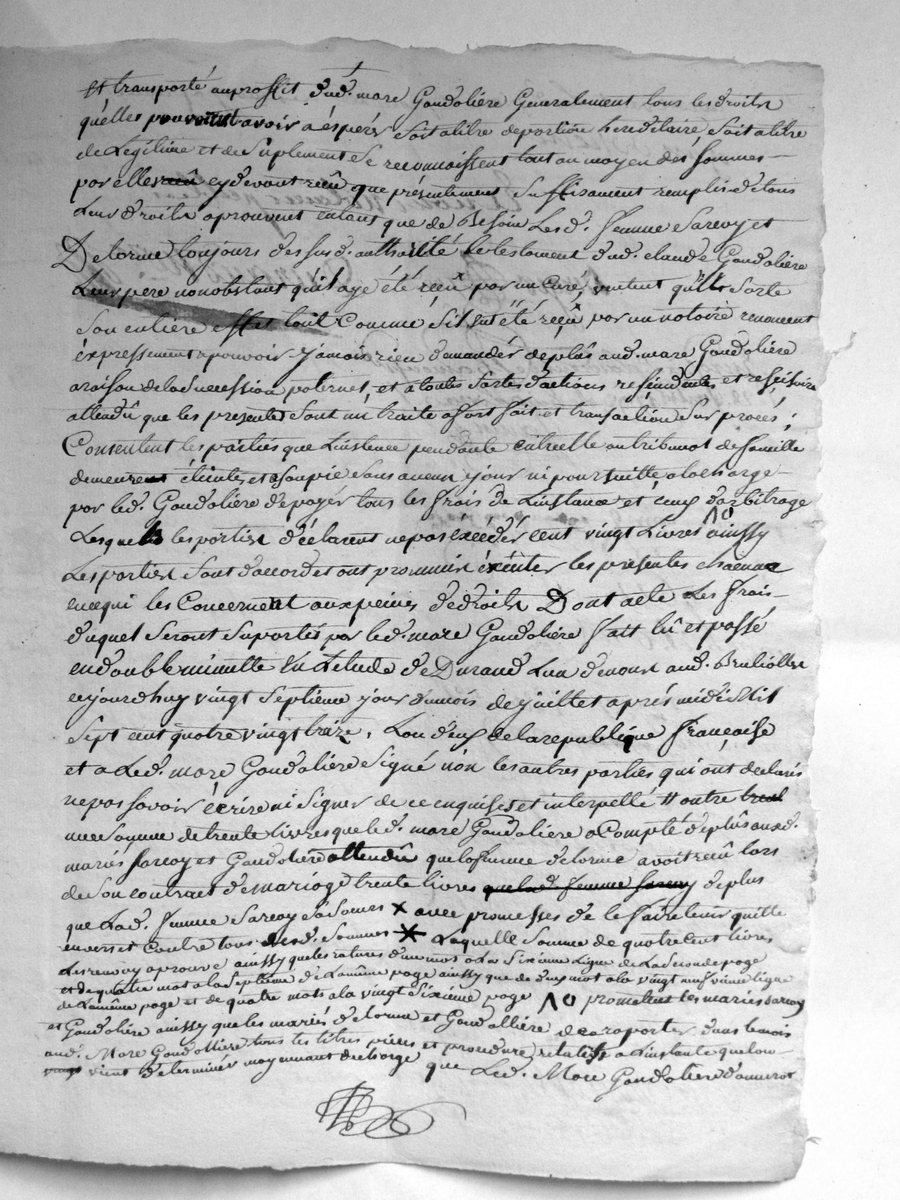 et transporté au proffit dud. marc Gandolière Generalement tous les droits
quelles pouvoient avoir a éspérér soit a titre de portion hereditaire, soit a titre
de Legitime et de suplement se reconnaissent tout au moyen des sommes
par elles cy devant reçu que présentement suffisament remplies de tous
Leur droits aprouvent entant que de Besoin Les d. femme Sarcoy et
Delorme toujours dessusd. authorité le testament dud. claude Gandolière
Leur père nonobstant qu'il aye été reçû par un Curé, veulent qu'il sorte
son entière effet tout Comme s'il eut été reçû par un notoire renoncent
éxpressement a pouvoir jamais rien demandér de plus aud. marc Gandolière
a raison de la succession paternel, et a toutes sortes dactions resindantes et resisoire
attendû que les presentes sont un traite a fort fait et transaction sur procés;
Consentent les parties que Linstance pendante entreelle au tribunal de famille
demeurent éteinte, et asoupie sans aucun jour ni poursuitte a la charge
par led. Gandolière de payer tous les frais de Linstance et ceux darbitrage
Lesquels les parties déclarent ne pas éxcéder cent vingt Livres aussy
Les parties sont daccord et ont prommis éxécuter les presentes chacune
en ce qui les Concernent aux peines de droits Dont acte Les frais
duquel seront suportés par led. marc Gandolière fait lû et passé
en double minutte En Letude de Durand Lun de nous aud. Brulliolles
cejourdhuy vingt septieme jour du mois de juillet aprés midi Mil
sept cent quatre vingt treize, Lan deux de la republique française
et a Led. marc Gandolière signé non les autres parties qui ont declarés
ne pas savoir écrire ni signer de ce enquises et interpellé # outre
une somme de trente livres que led. marc Gandolière a Compté de plus auxd.
mariés sarcoy et Gandolière attendû que la femme delorme avoit reçû lors
de son contract de mariage trente livres que lad. femme Sarcoy de plus
que Lad. femme Sarcoy sa soeur X avec promesses de le faire tenir quitte
envers et contre tous desd. sommes X Laquelle somme de quatre cent livres
Les renvoy aprouvé aussy que les ratures d'un mot a La sixieme Ligne de La seconde page
et de quatre mot a la septieme de La même page aussy que de deux mot a la vingt neuf vieme ligne
de La même page et de quatre mots a la vingt sixieme page promettent les mariés Sarcoy
et Gandolière aussy que les mariés delorme et Gandollière de raporter dans le mois
aud. Marc Gandollière tous les titres pieces et procedure relatifs a Linstance que lon
vient determinér moyennant decharge que Led. Marc Gandolière donnerat